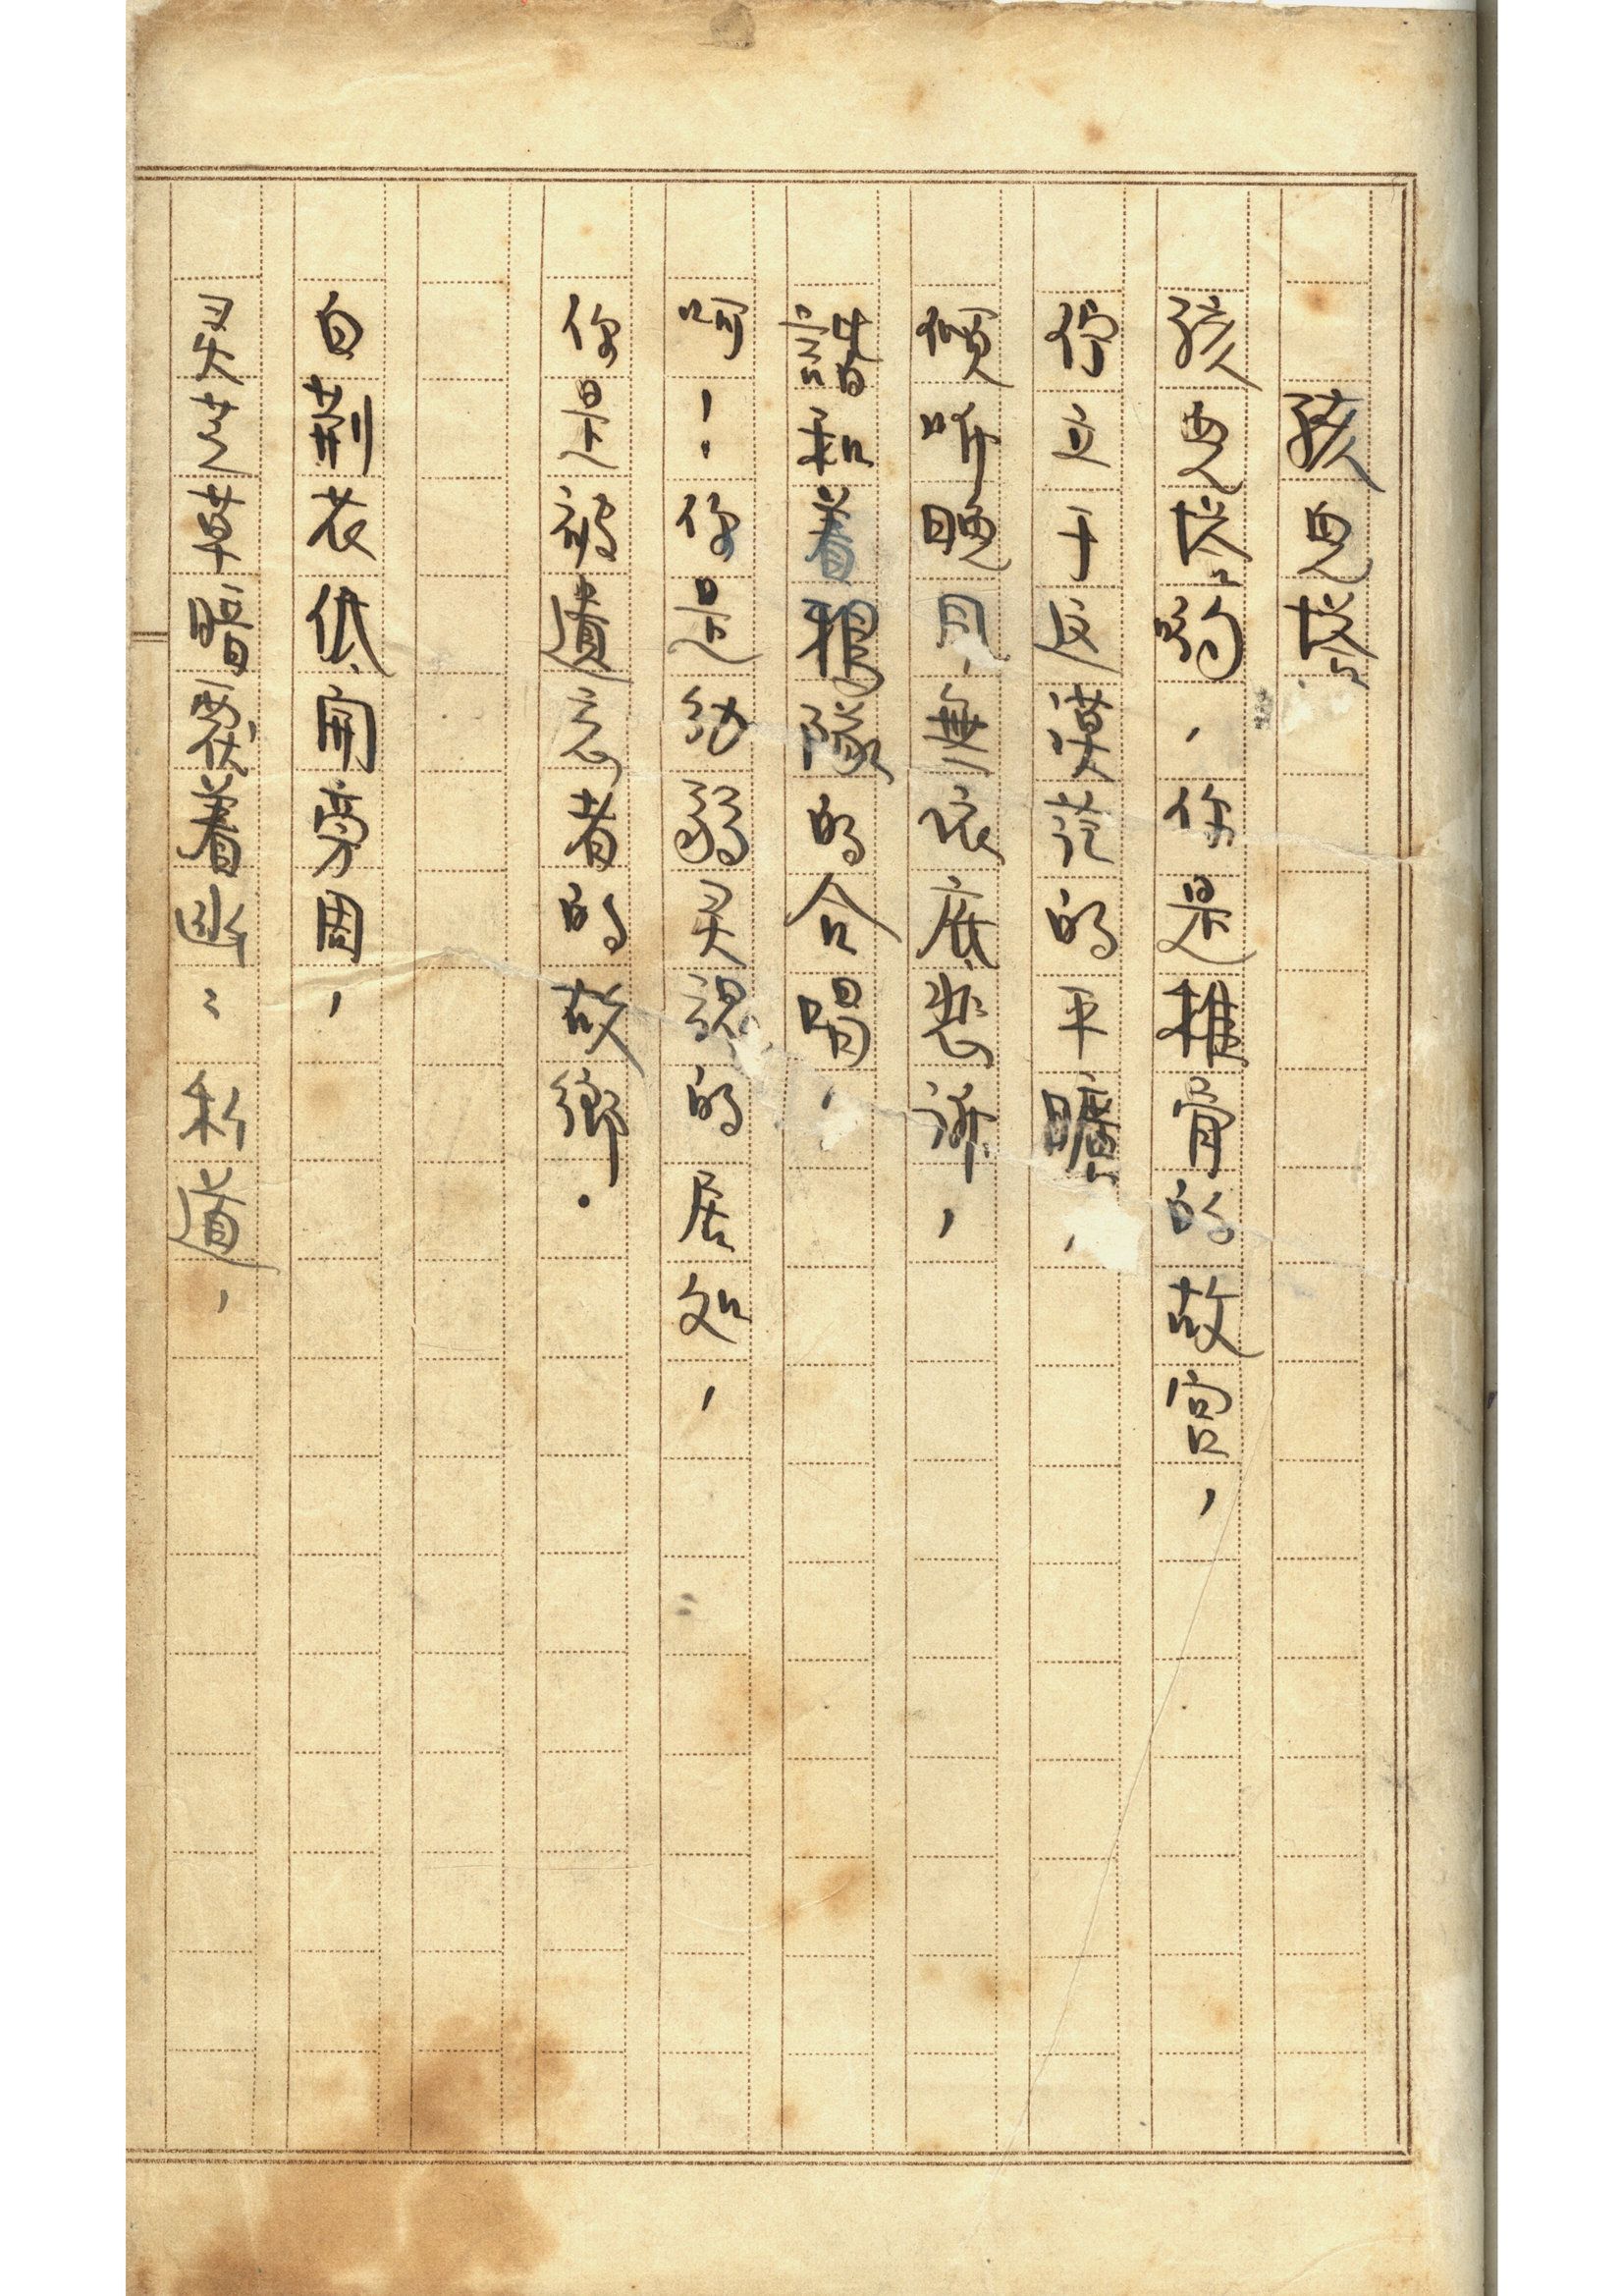 孩児塔
孩児塔喲，你是稚骨的故宮，
佇立于這漫茫的平曠，
傾听晚風無依底悲訴，
諧和着鴉隊的合唱，
呵！你是幼弱灵魂的居処，
你是被遺忘者的故鄉．
白荊花低開旁周，
灵芝草暗覆着幽幽私道，